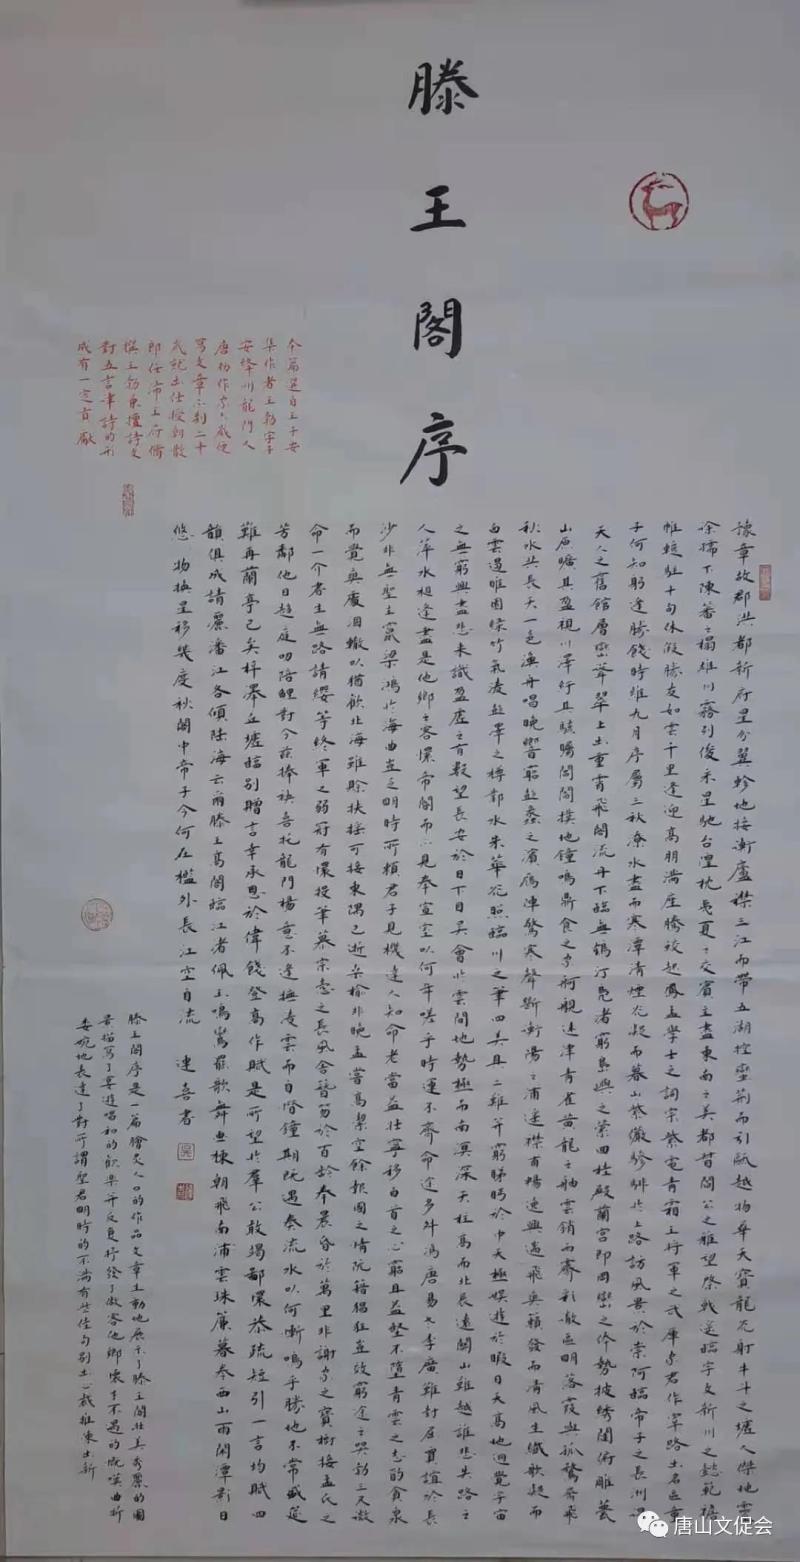 滕王閣序
豫章故郡洪都新府星分翼軫地接衡廬襟三江而帶五湖控蠻荊而引甌越物華天寶龍光射牛斗之墟人傑地靈
徐孺下陳蕃之榻雄州霧列俊采星馳台隍枕夷夏之交賓主盡東南之美都督閻公之雅望棨戟遙臨宇文新州之懿範襜
帷暫駐十旬休假勝友如雲千里逢迎高朋滿座騰蛟起鳳孟學士之詞宗紫電青霜王將軍之武庫家君作宰路出名區童
子何知躬逢勝餞時維九月序屬三秋潦水盡而寒潭清煙光凝而暮山紫儼驂騑於上路訪風景於崇阿臨帝子之長洲得
天人之舊館層巒聳翠上出重霄飛閣流丹下臨無地鶴汀鳧渚窮島嶼之縈回桂殿蘭宮即岡巒之體勢披繡闥俯雕甍
山原曠其盈視川澤紆其駭矚閭閻撲地鐘鳴鼎食之家舸艦迷津青雀黃龍之舳雲銷雨霽彩徹區明落霞與孤鶩齊飛
秋水共長天一色漁舟唱晚響窮彭蠡之濱雁陣驚寒聲斷衡陽之浦遙襟甫暢逸興遄飛爽籟發而清風生纖歌凝而
白雲遏睢園綠竹氣凌彭澤之樽鄴水朱華光照臨川之筆四美具二難並窮睇眄於中天極娛遊於暇日天高地迥覺宇宙
之無窮興盡悲來識盈虛之有數望長安於日下目吳會於雲間地勢極而南溟深天柱高而北辰遠關山難越誰悲失路之
人萍水相逢盡是他鄉之客懷帝閽而不見奉宣室以何年嗟乎時運不齊命途多舛馮唐易老李廣難封屈賈誼於長
沙非無聖主竄梁鴻於海曲豈乏明時所賴君子見機達人知命老當益壯寧移白首之心窮且益堅不墮青雲之志酌貪泉
而覺爽處涸轍以猶歡北海雖賒扶搖可接東隅已逝桑榆非晚孟嘗高潔空餘報國之情阮籍猖狂豈效窮途之哭勃三尺微
命一介書生無路請纓等終軍之弱冠有懷投筆慕宗愨之長風舍簪笏於百齡奉晨昏於萬里非謝家之寶樹接孟氏之
芳鄰他日趨庭叨陪鯉對今茲捧袂喜托龍門楊意不逢撫凌雲而自惜鐘期既遇奏流水以何慚嗚乎勝地不常盛筵
難再蘭亭已矣梓澤丘墟臨別贈言幸承恩於偉餞登高作賦是所望於群公敢竭鄙懷恭疏短引一言均賦四
韻俱成請灑潘江各傾陸海云爾滕王高閣臨江渚佩玉鳴鸞罷歌舞畫棟朝飛南浦雲珠簾暮卷西山雨閑潭影日
悠悠物換星移幾度秋閣中帝子今何在檻外長江空自流 連喜書
本篇選自王子安
集作者王勃字子
安絳州龍門人
唐初作家六歲便
寫文章不到二十
歲就出仕授朝散
郎任沛王府修
撰王勃兼擅詩文
對五言律詩的形
成有一定貢獻
滕王閣序是一篇膾炙人口的作品文章生動地展示了滕王閣壯美秀麗的圖
景描寫了宴遊唱和的歡樂並反復抒發了做客他鄉懷才不遇的感嘆曲折
委婉地表達了對所謂聖君明時的不滿有些佳句別出心裁推陳出新
唐山文促会